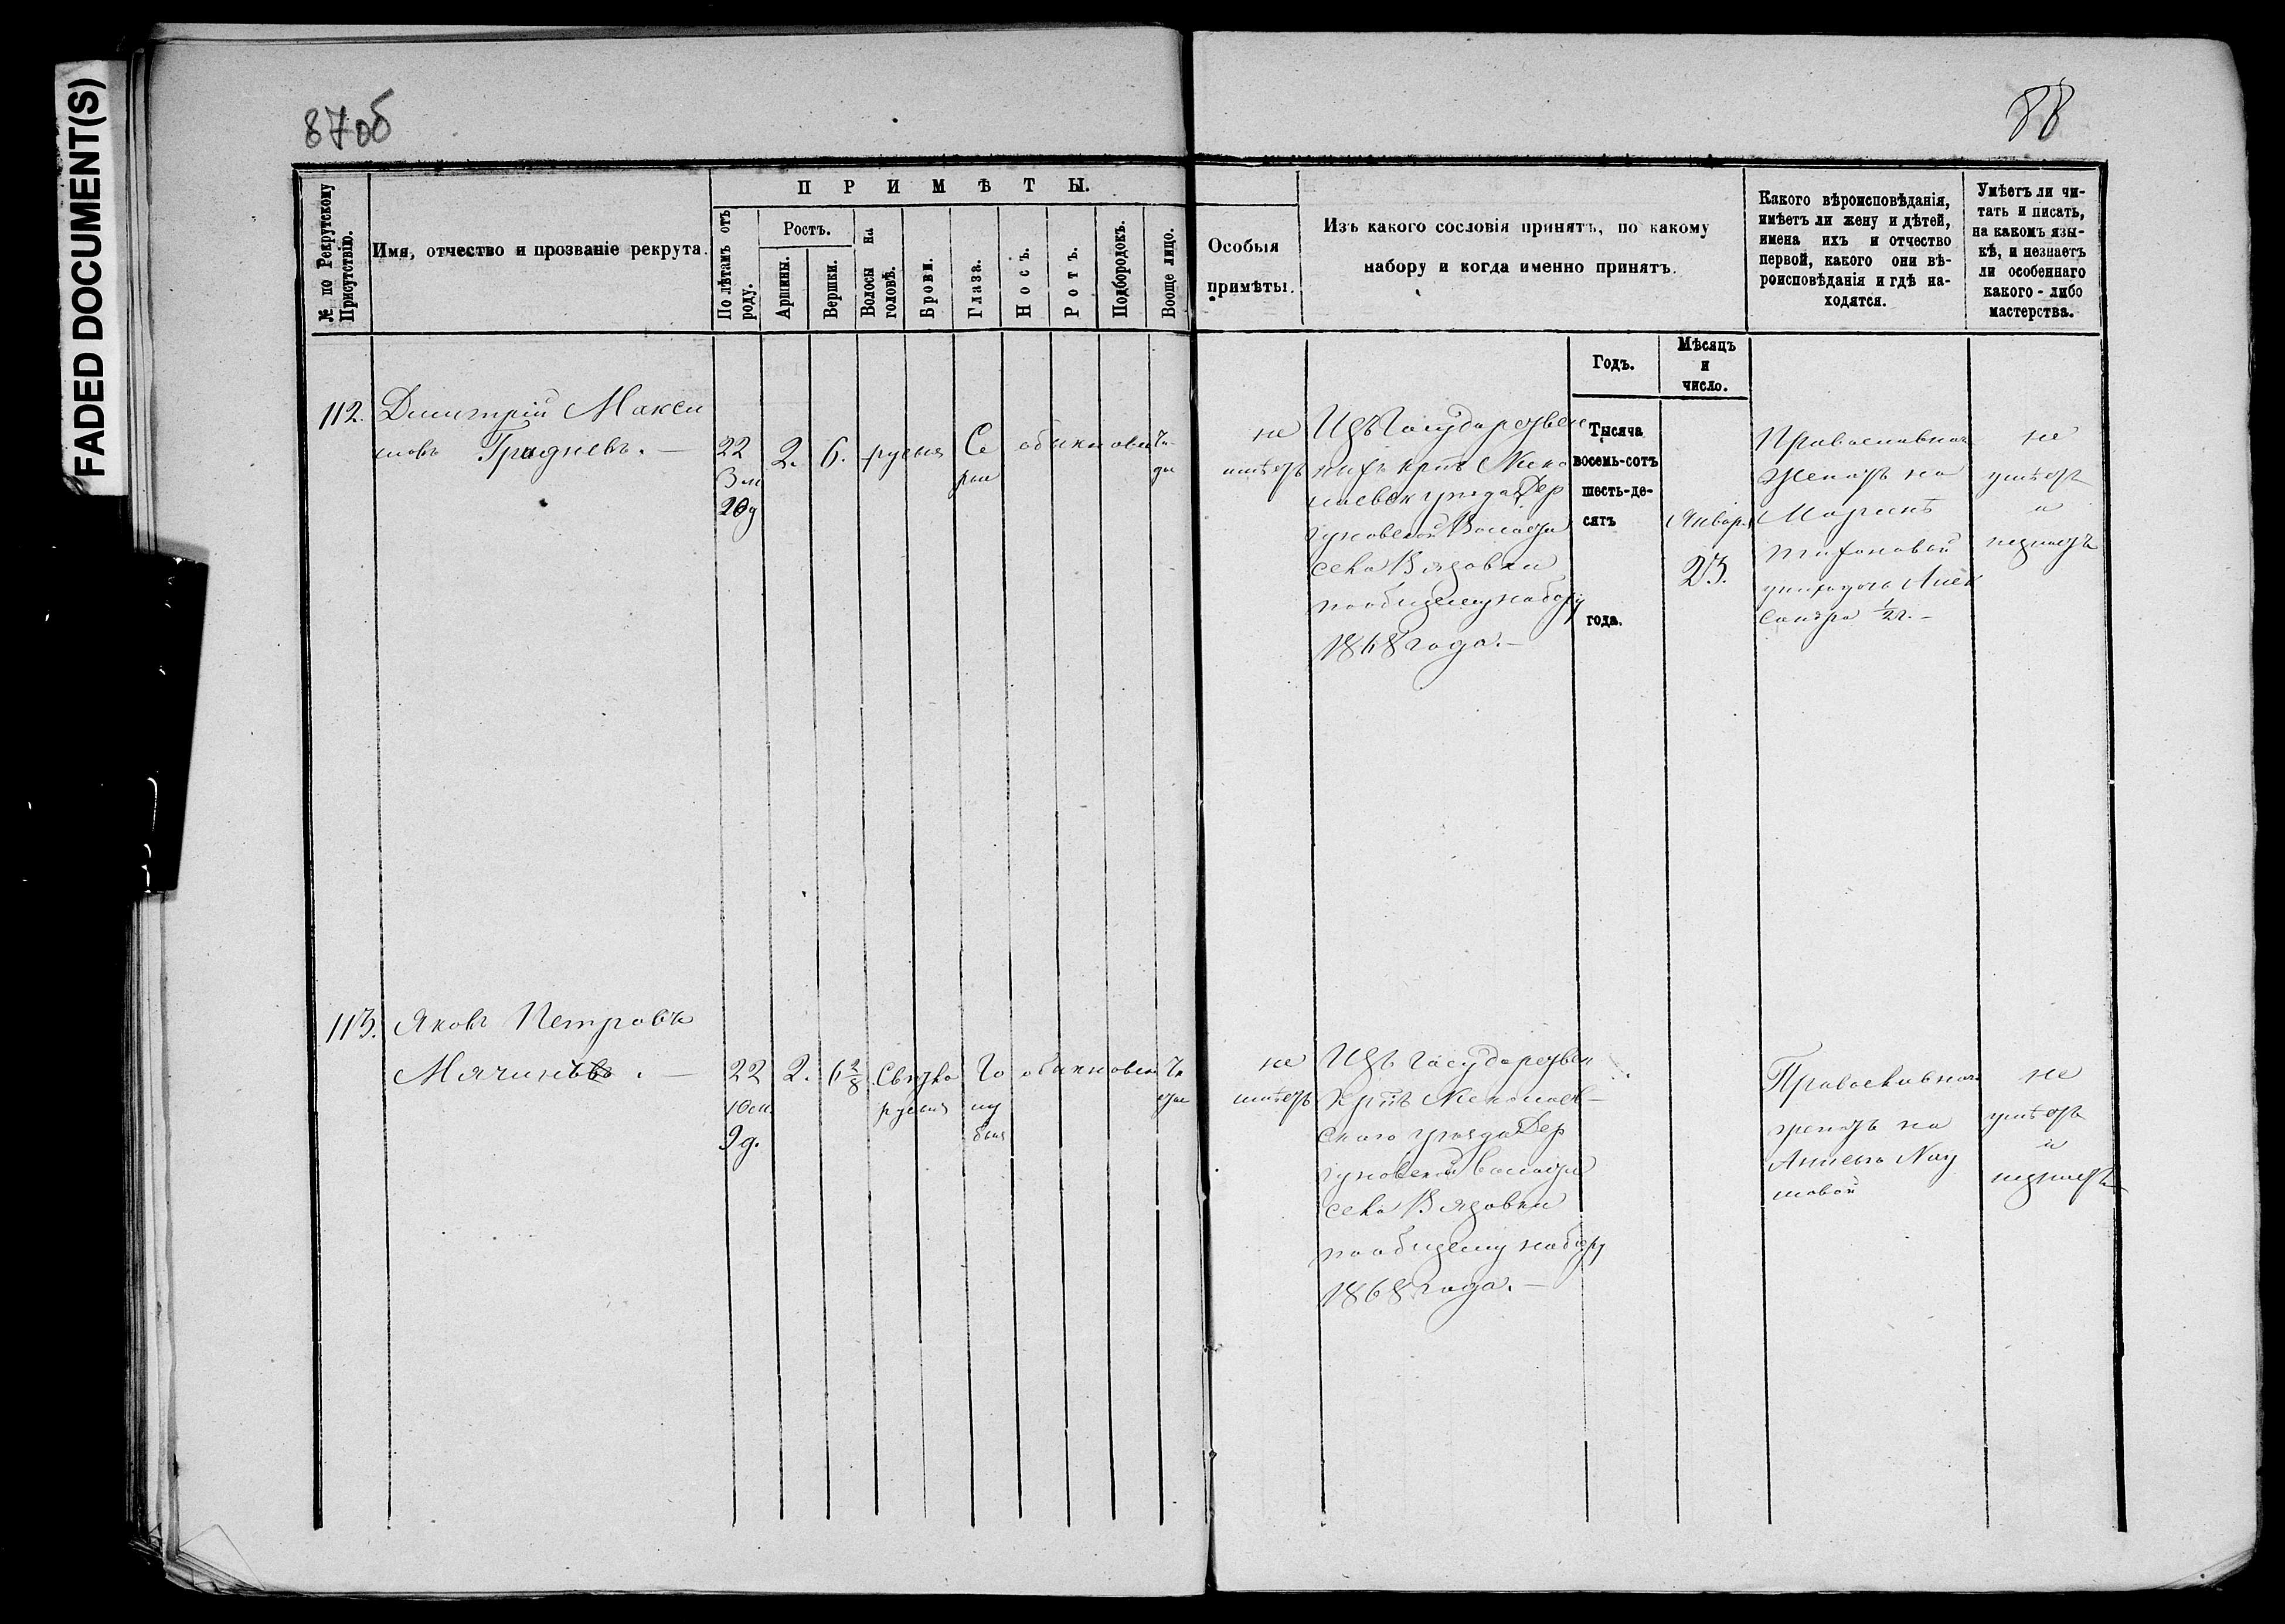 FADED DOCUMENT(S)
87об
88
№ по Рекрутскому
Присутствію.
Имя, отчество и прозваніе рекрута.
ПРИМѢТЫ.
По лѣтамъ отъ
роду.
Ростъ.
Аршины.
Вершки.
Волосы на
головѣ.
Брови.
Глаза.
Носъ.
Ротъ.
Подбородокъ.
Вооще лицо.
Особыя
примѣты.
Изъ какого сословія принятъ, по какому
набору и когда именно принятъ.
Какого вѣроисповѣданія,
имѣетъ ли жену и дѣтей,
имена ихъ и отчество
первой, какого они вѣ-
роисповѣданія и гдѣ на-
ходятся.
Умѣетъ ли чи-
тать и писать,
на какомъ язы-
кѣ, и незнаетъ
ли особеннаго
какого-либо
мастерства.
Годъ.
Мѣсяцъ
и
число.
112.
Димитрій Макси
мовъ Гриднев.
22
3 м
20 д
2.
6.
русыя
Се
рыи
обыкновен
чи
не
имѣетъ
Изъ Государствен
ныхъ крть Нико
лаевск уѣзда Дер
гуновской Волости
села Вязовки
пообщему набору
1868 года.
Тысяча
восемь-сотъ
шесть-де-
сятъ
года.
Январ.
23.
Православнаго
женатъ на
Маринѣ
Тихоновой
у нихъ дочь Алек
сандра 1/2 г.
не
умѣетъ
и
незнаетъ
113.
Яковъ Петровъ
Мячинъ.
22
10 м.
9 д.
2.
6 2/8
Свѣтло
русыя
Го
лу
быя
обыкновен
чи
не
имѣетъ
Изъ Государствен
крть Николаев-
скаго уѣзда Дер
гуновской волости
села Вязовки
пообщему набору
1868 года.
Православнаго
женатъ на
Анисьѣ Нау
мовой
не
умѣетъ
и
незнаетъ